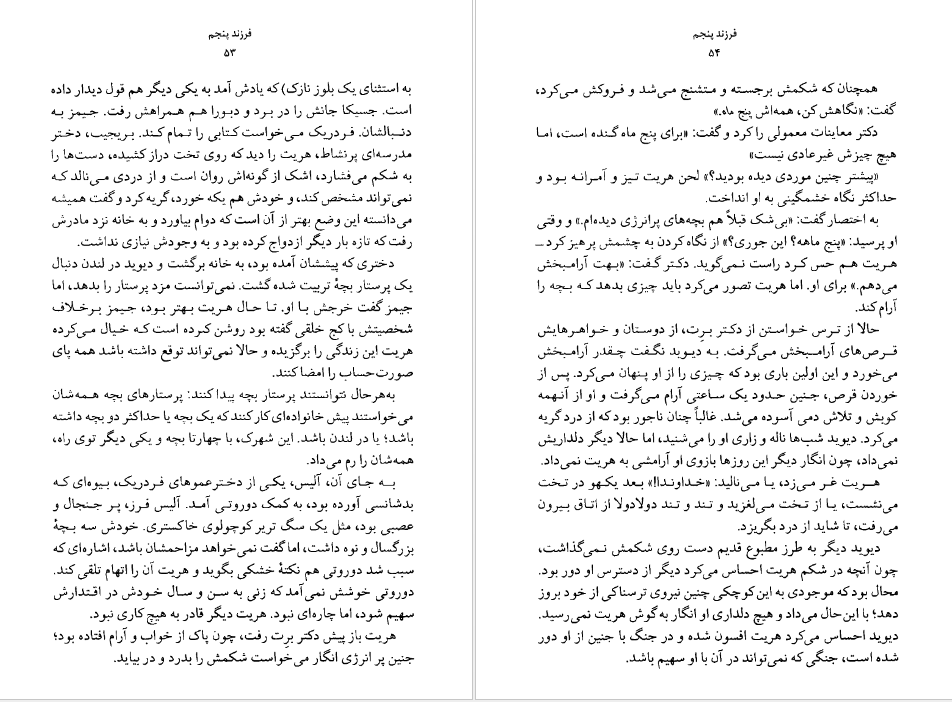 فرزند پنجم
۵۳
به استثنای یک بلوز نازک) که یادش آمد به یکی دیگر هم قول دیدار داده
است. جسیکا جانش را در برد و دبورا هم همراهش رفت. جیمز به
دنبالشان. فردریک می‌خواست کتابی را تمام کند. بریجیب، دختر
مدرسه‌ای پرنشاط، هریت را دید که روی تخت دراز کشیده، دست‌ها را
به شکم می‌فشارد، اشک از گونه‌اش روان است و از دردی می‌نالد که
نمی‌تواند مشخص کند، و خودش هم یکه خورد، گریه کرد و گفت همیشه
می‌دانسته این وضع بهتر از آن است که دوام بیاورد و به خانه نزد مادرش
رفت که تازه بار دیگر ازدواج کرده بود و به وجودش نیازی نداشت.
دختری که پیششان آمده بود، به خانه برگشت و دیوید در لندن دنبال
یک پرستار بچهٔ تربیت شده گشت. نمی‌توانست مزد پرستار را بدهد، اما
جیمز گفت خرجش با او. تا حال هریت بهتر بود، جیمز برخلاف
شخصیتش با کج خلقی گفته بود روشن کرده است که خیال می‌کرده
هریت این زندگی را برگزیده و حالا نمی‌تواند توقع داشته باشد همه پای
صورت‌حساب را امضا کنند.
به‌هرحال نتوانستند پرستار بچه پیدا کنند: پرستارهای بچه همه‌شان
می‌خواستند پیش خانواده‌ای کار کنند که یک بچه یا حداکثر دو بچه داشته
باشد؛ یا در لندن باشد. این شهرک، با چهارتا بچه و یکی دیگر توی راه،
همه‌شان را رم می‌داد.
به جای آن، آلیس، یکی از دخترعموهای فردریک، بیوه‌ای که
بدشانسی آورده بود، به کمک دوروتی آمد. آلیس فرز، پر جنجال و
عصبی بود، مثل یک سگ تریر کوچولوی خاکستری. خودش سه بچهٔ
بزرگسال و نوه داشت، اما گفت نمی‌خواهد مزاحمشان باشد، اشاره‌ای که
سبب شد دوروتی هم نکتهٔ خشکی بگوید و هریت آن را اتهام تلقی کند.
دوروتی خوشش نمی‌آمد که زنی به سن و سال خودش در اقتدارش
سهیم شود، اما چاره‌ای نبود. هریت دیگر قادر به هیچ کاری نبود.
هریت باز پیش دکتر برِت رفت، چون پاک از خواب و آرام افتاده بود؛
جنین پر انرژی انگار می‌خواست شکمش را بدرد و در بیاید.
فرزند پنجم
۵۴
همچنان که شکمش برجسته و متشنج می‌شد و فروکش می‌کرد،
گفت: «نگاهش کن، همه‌اش پنج ماه.»
دکتر معاینات معمولی را کرد و گفت: «برای پنج ماه گنده است، اما
هیچ چیزش غیرعادی نیست»
«پیشتر چنین موردی دیده بودید؟» لحن هریت تیز و آمرانه بود و
حداکثر نگاه خشمگینی به او انداخت.
به اختصار گفت: «بی‌شک قبلاً هم بچه‌های پرانرژی دیده‌ام.» و وقتی
او پرسید: «پنج ماهه؟ این جوری؟» از نگاه کردن به چشمش پرهیز کرد ـــ
هریت هم حس کرد راست نمی‌گوید. دکتر گفت: «بهت آرامبخش
می‌دهم.» برای او. اما هریت تصور می‌کرد باید چیزی بدهد که بچه را
آرام کند.
حالا از ترس خواستن از دکتر برِت، از دوستان و خواهرهایش
قرص‌های آرامبخش می‌گرفت. به دیوید نگفت چقدر آرامبخش
می‌خورد و این اولین باری بود که چیزی را از او پنهان می‌کرد. پس از
خوردن قرص، جنین حدود یک ساعتی آرام می‌گرفت و او از آنهمه
کوبش و تلاش دمی آسوده می‌شد. غالباً چنان ناجور بود که از درد گریه
می‌کرد. دیوید شب‌ها ناله و زاری او را می‌شنید، اما حالا دیگر دلداریش
نمی‌داد، چون انگار دیگر این روزها بازوی او آرامشی به هریت نمی‌داد.
هریت غر می‌زد، یا می‌نالید: «خداوندا!» بعد یکهو در تخت
می‌نشست، یا از تخت می‌لغزید و تند و تند دولادولا از اتاق بیرون
می‌رفت، تا شاید از درد بگریزد.
دیوید دیگر به طرز مطبوع قدیم دست روی شکمش نمی‌گذاشت،
چون آنچه در شکم هریت احساس می‌کرد دیگر از دسترس او دور بود.
محال بود که موجودی به این‌کوچکی چنین نیروی ترسناکی از خود بروز
دهد؛ با این‌حال می‌داد و هیچ دلداری او انگار به گوش هریت نمی‌رسید.
دیوید احساس می‌کرد هریت افسون شده و در جنگ با جنین از او دور
شده است، جنگی که نمی‌تواند در آن با او سهیم باشد.